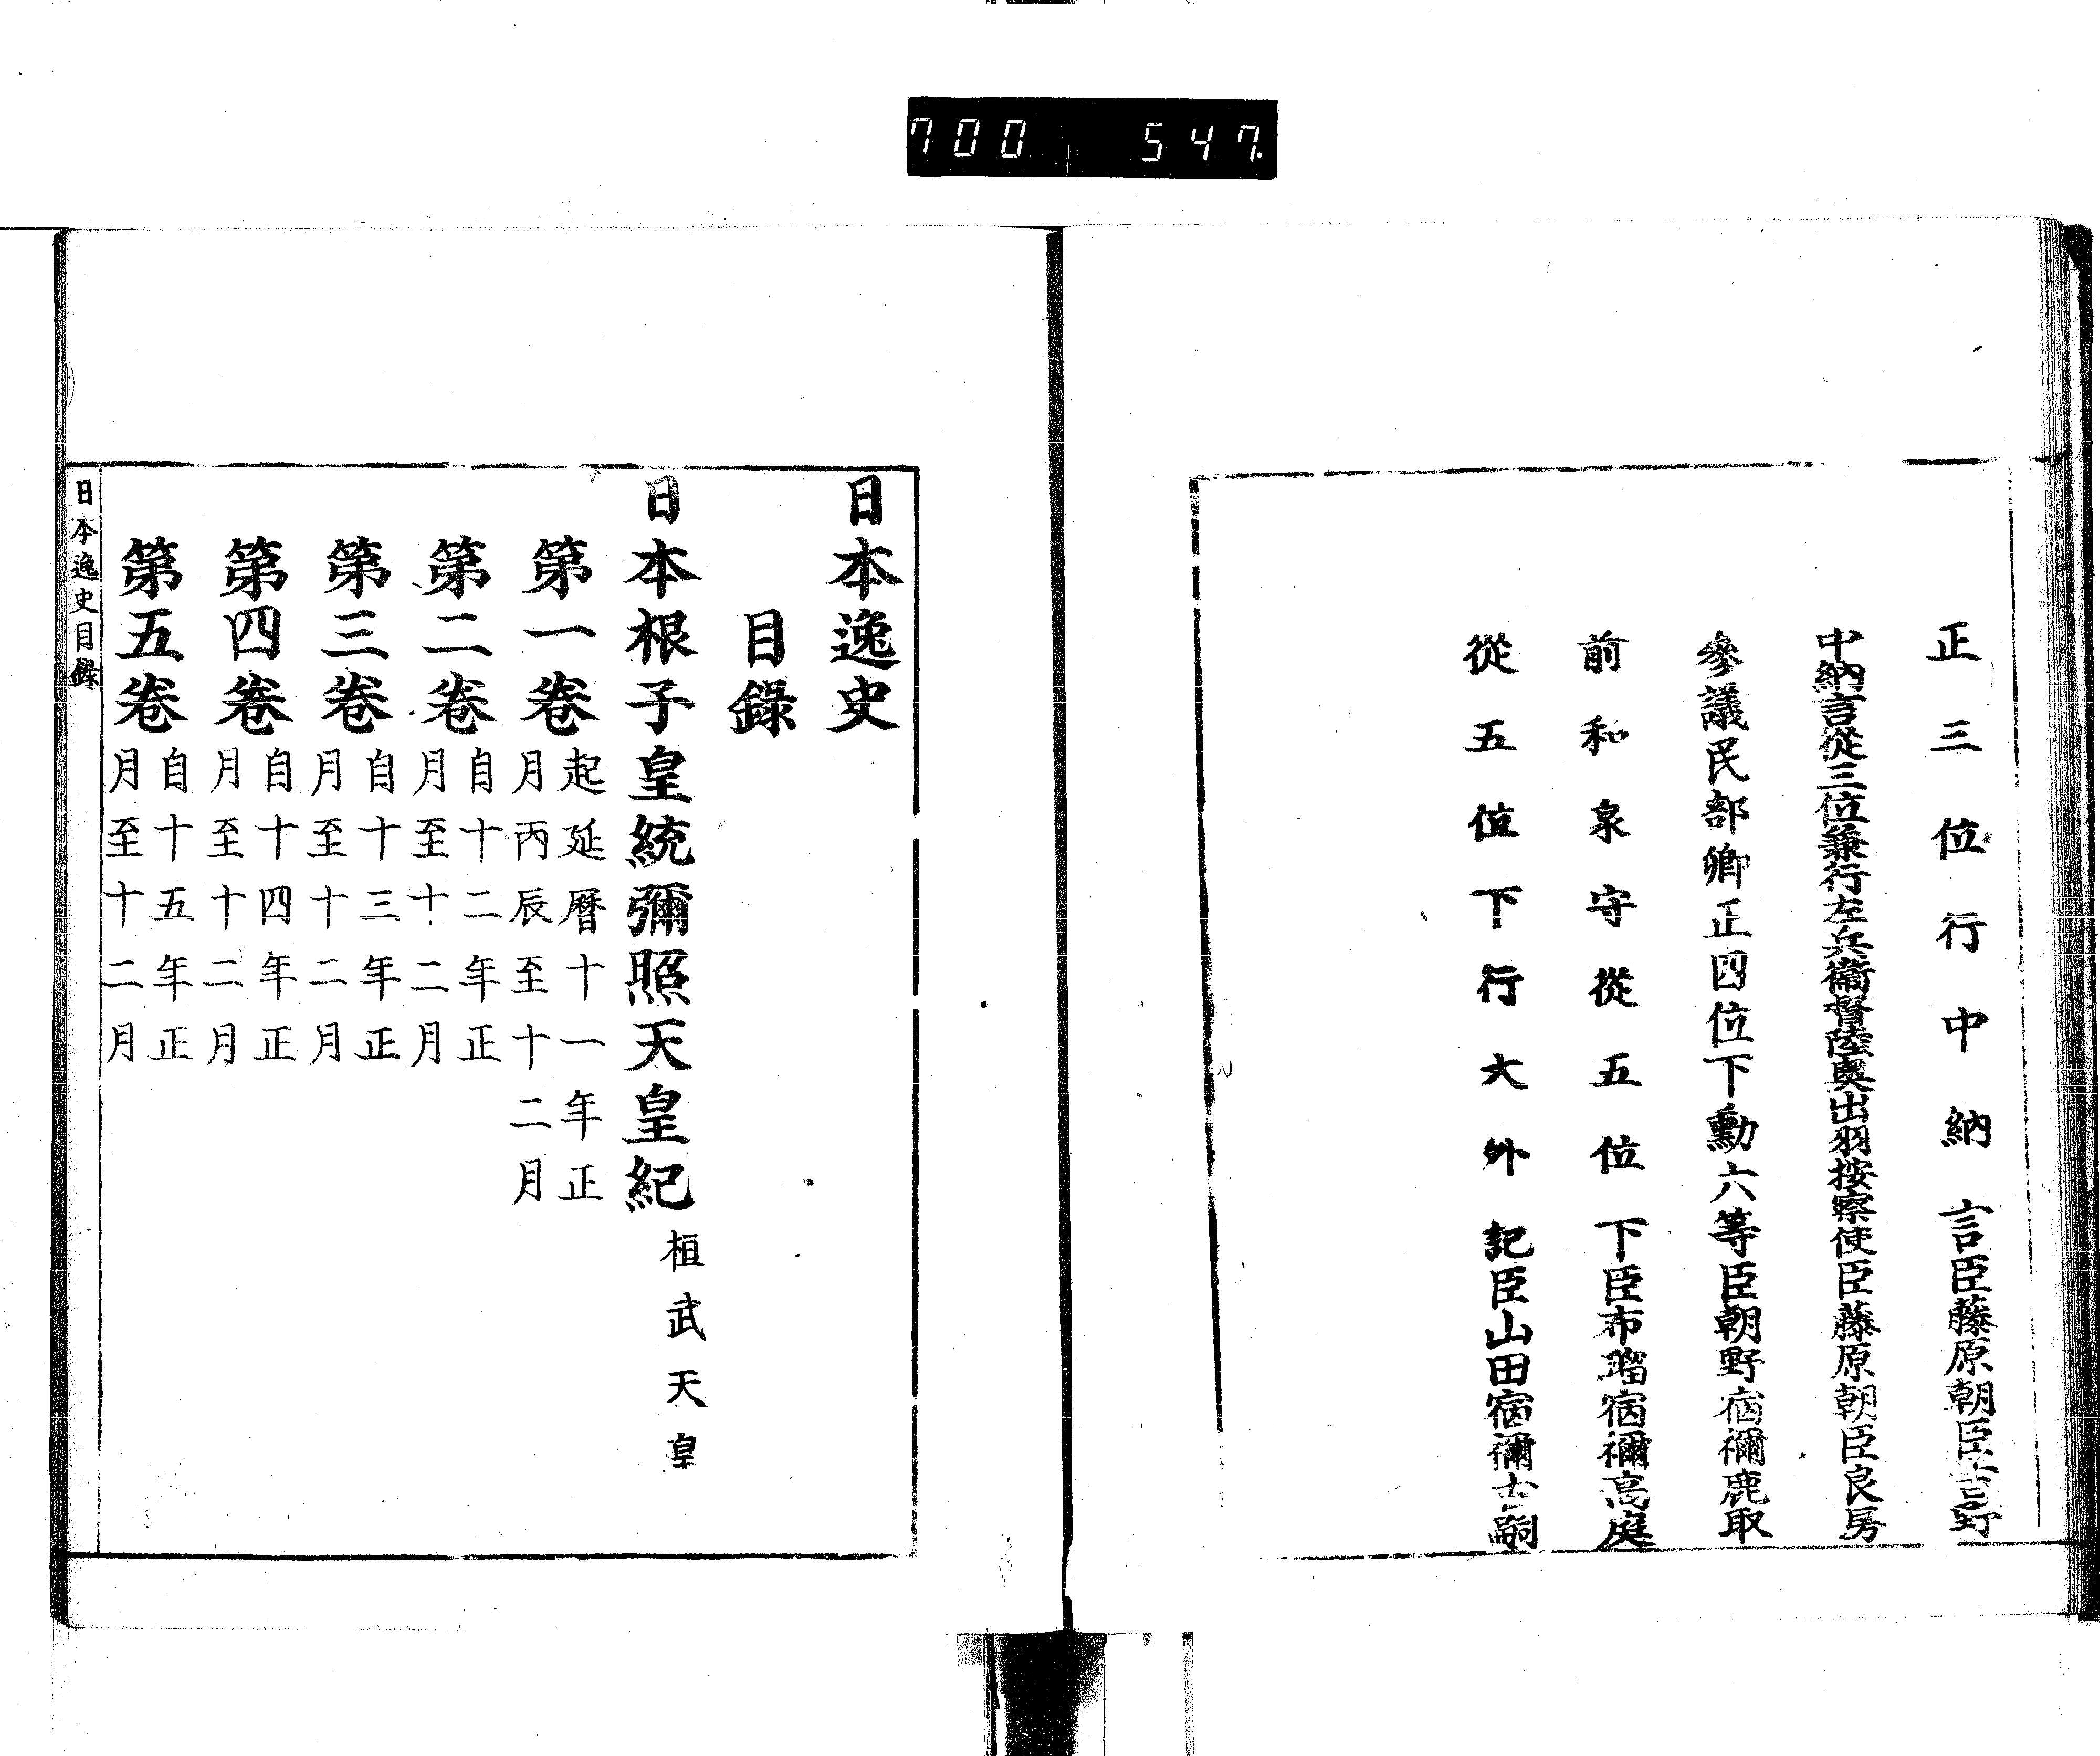 700 547.
正三位行中納言臣藤原朝臣吉野
中納言從三位兼行左兵衞督陸奧出羽按察使臣藤原朝臣良房
參議民部卿正四位下勳六等臣朝野宿禰鹿取
前和泉守從五位下臣布瑠宿禰高庭
從五位下行大外記臣山田宿禰古嗣
日本逸史
目錄
日本根子皇統彌照天皇紀 桓武天皇
第一卷 起延曆十一年正
月丙辰至十二月
第二卷 自十二年正
月至十二月
第三卷 自十三年正
月至十二月
第四卷 自十四年正
月至十二月
第五卷 自十五年正
月至十二月
日本逸史目錄